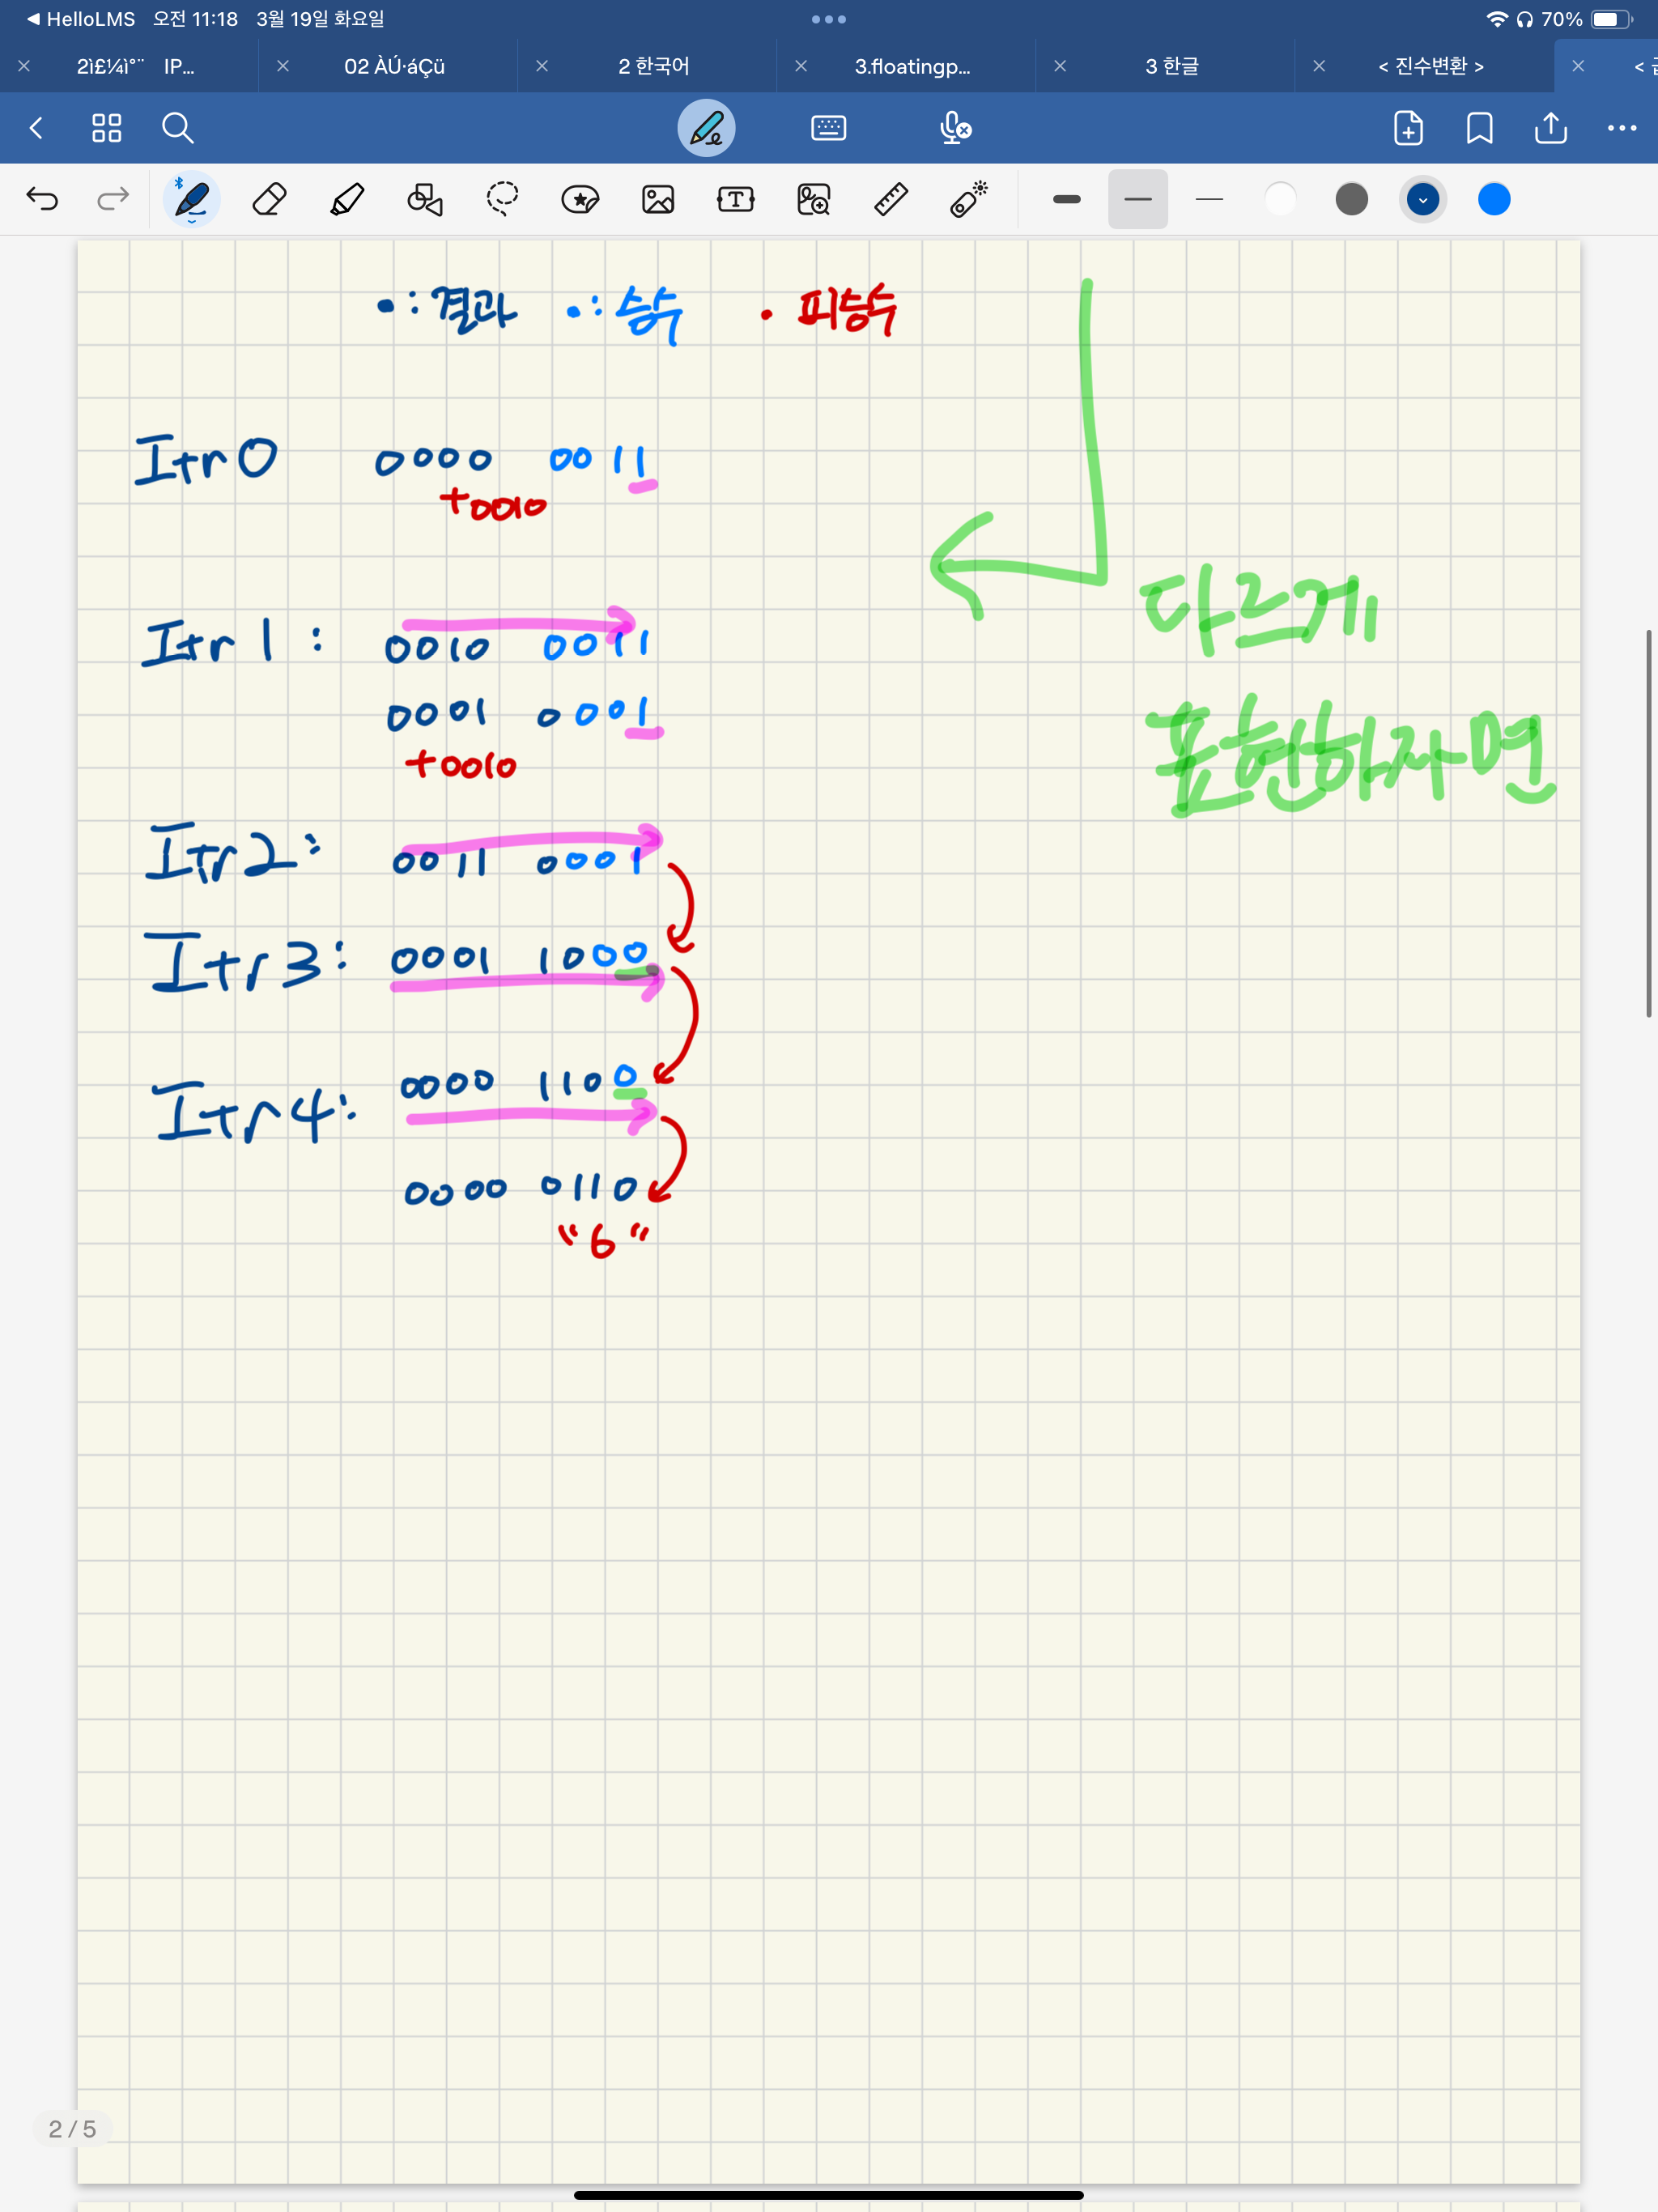 ◀ HelloLMS 오전 11:18 3월 19일 화요일 70%
2ì£¼ì°¨ IP... 02 ÀÚ·áÇü 2 한국어 3.floatingp... 3 한글 < 진수변환 > <
• : 결과 • : 승수 • 피승수
Itr 0 0000 0011
+0010
Itr 1 : 0010 0011
0001 0001
+0010
Itr 2 : 0011 0001
Itr 3 : 0001 1000
Itr 4 : 0000 1100
0000 0110
"6"
다르게
표현하자면
2 / 5